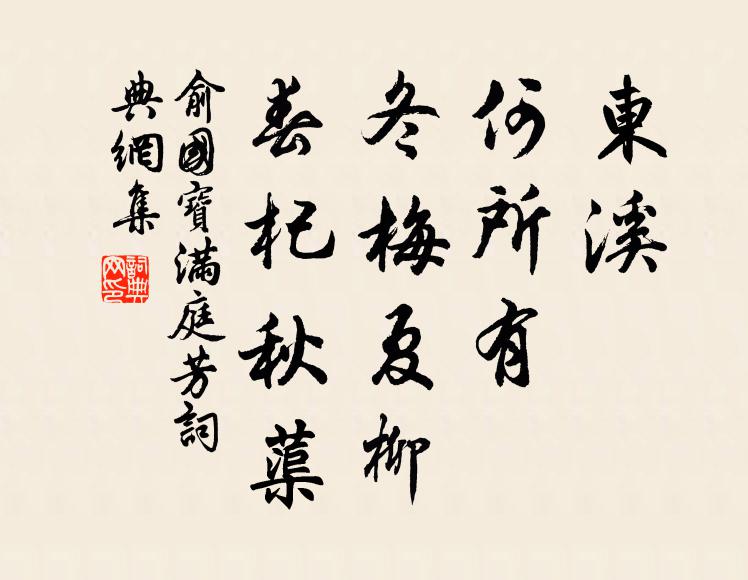 東溪
何所有
冬梅夏柳
春杞秋蕖
俞國寶滿庭芳詞
典網集
詞典網印